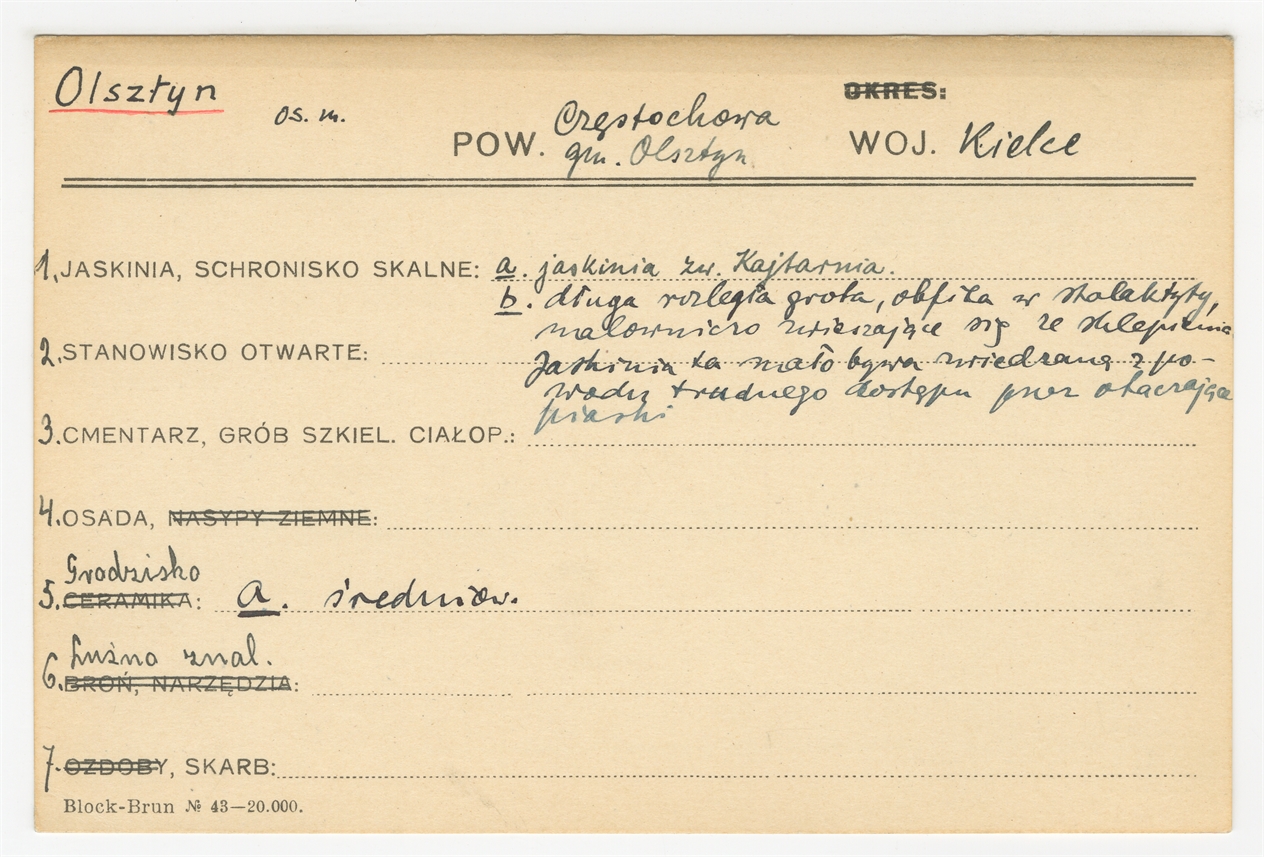 Olsztyn
os. m.
OKRES:
POW. Częstochowa
gm. Olsztyn
WOJ. Kielce
1. JASKINIA, SCHRONISKO SKALNE: a. jaskinia zw. Kajtarnia.
b. długa rozległa grota, obfita w stalaktyty,
malowniczo zwieszające się ze sklepienia
2. STANOWISKO OTWARTE:
Jaskinia ta mało bywa zwiedzana z po-
wodu trudnego dostępu przez otaczające
piaski
3. CMENTARZ, GRÓB SZKIEL. CIAŁOP.:
4. OSADA, NASYPY ZIEMNE:
Grodzisko
5. CERAMIKA: a. średniow.
Luźno znal.
6. BROŃ, NARZĘDZIA:
7. OZDOBY, SKARB:
Block-Brun № 43—20.000.